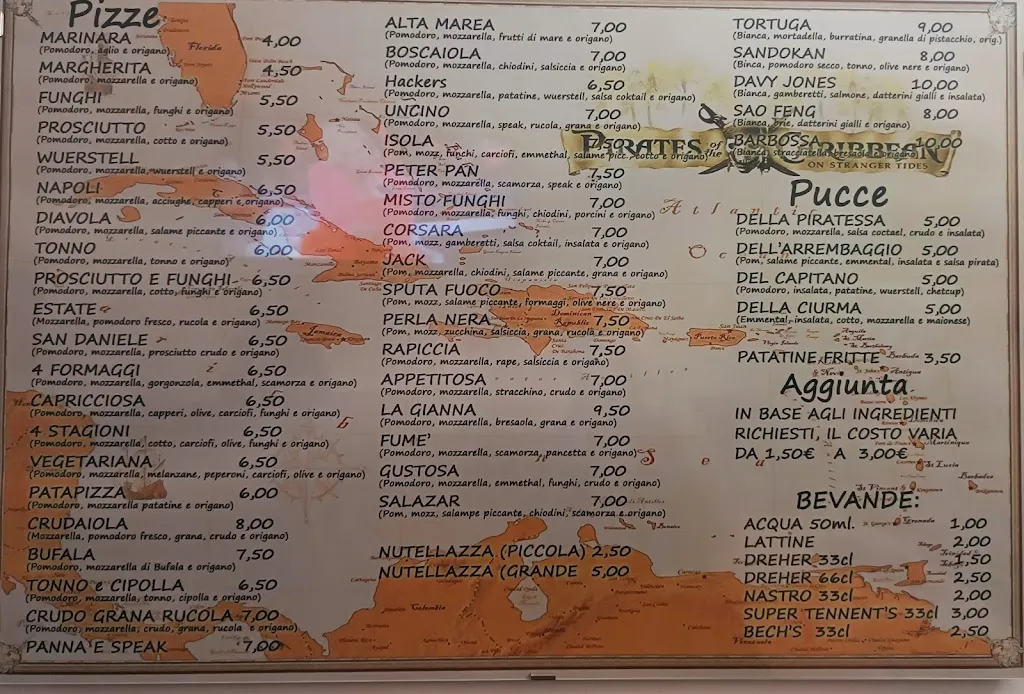 Pizze
MARINARA 4,00
(Pomodoro, aglio e origano)
MARGHERITA 4,50
(Pomodoro, mozzarella e origano)
FUNGHI 5,50
(Pomodoro, mozzarella, funghi e origano)
PROSCIUTTO 5,50
(Pomodoro, mozzarella, cotto e origano)
WUERSTELL 5,50
(Pomodoro, mozzarella, wuerstell e origano)
NAPOLI 6,50
(Pomodoro, mozzarella, acciughe, capperi e origano)
DIAVOLA 6,00
(Pomodoro, mozzarella, salame piccante e origano)
TONNO 6,00
(Pomodoro, mozzarella, tonno e origano)
PROSCIUTTO E FUNGHI 6,50
(Pomodoro, mozzarella, cotto, funghi e origano)
ESTATE 6,50
(Mozzarella, pomodoro fresco, rucola e origano)
SAN DANIELE 6,50
(Pomodoro, mozzarella, prosciutto crudo e origano)
4 FORMAGGI 6,50
(Pomodoro, mozzarella, gorgonzola, emmethal, scamorza e origano)
CAPRICCIOSA 6,50
(Pomodoro, mozzarella, capperi, olive, carciofi, funghi e origano)
4 STAGIONI 6,50
(Pomodoro, mozzarella, cotto, carciofi, olive, funghi e origano)
VEGETARIANA 6,50
(Pomodoro, mozzarella, melanzane, peperoni, carciofi, olive e origano)
PATAPIZZA 6,00
(Pomodoro, mozzarella patatine e origano)
CRUDAIOLA 8,00
(Mozzarella, pomodoro fresco, grana, crudo e origano)
BUFALA 7,50
(Pomodoro, mozzarella di Bufala e origano)
TONNO e CIPOLLA 6,50
(Pomodoro, mozzarella, tonno, cipolla e origano)
CRUDO GRANA RUCOLA 7,00
(Pomodoro, mozzarella, crudo, grana, rucola e origano)
PANNA E SPEAK 7,00
ALTA MAREA 7,00
(Pomodoro, mozzarella, frutti di mare e origano)
BOSCAIOLA 7,00
(Pomodoro, mozzarella, chiodini, salsiccia e origano)
Hackers 6,50
(Pomodoro, mozzarella, patatine, wuerstell, salsa coktail e origano)
UNCINO 7,00
(Pomodoro, mozzarella, speak, rucola, grana e origano)
ISOLA 7,50
(Pom, mozz, funchi, carciofi, emmethal, salame picc., cotto e origano)
PETER PAN 7,50
(Pomodoro, mozzarella, scamorza, speak e origano)
MISTO FUNGHI 7,00
(Pomodoro, mozzarella, funghi, chiodini, porcini e origano)
CORSARA 7,00
(Pom, mozz, gamberetti, salsa coktail, insalata e origano)
JACK 7,00
(Pom, mozzarella, chiodini, salame piccante, grana e origano)
SPUTA FUOCO 7,50
(Pom, mozz, salame piccante, formaggi, olive nere e origano)
PERLA NERA 7,50
(Pom, mozz, zucchina, salsiccia, grana, rucola e origano)
RAPICCIA 7,50
(Pomodoro, mozzarella, rape, salsiccia e origano)
APPETITOSA 7,00
(Pomodoro, mozzarella, stracchino, crudo e origano)
LA GIANNA 9,50
(Pomodoro, mozzarella, bresaola, grana e origano)
FUME' 7,00
(Pomodoro, mozzarella, scamorza, pancetta e origano)
GUSTOSA 7,00
(Pomodoro, mozzarella, emmethal, funghi, crudo e origano)
SALAZAR 7,00
(Pom, mozz, salampe piccante, chiodini, scamorza e origano)
NUTELLAZZA (PICCOLA) 2,50
NUTELLAZZA (GRANDE 5,00
TORTUGA 9,00
(Bianca, mortadella, burratina, granella di pistacchio, orig.)
SANDOKAN 8,00
(Binca, pomodoro secco, tonno, olive nere e origano)
DAVY JONES 10,00
(Bianca, gamberetti, salmone, datterini gialli e insalata)
SAO FENG 8,00
(Bianca, brie, datterini gialli e origano)
BARBOSSA 10,00
(Bianca stracciatella bresaola e origano)
PIRATES of the CARIBBEAN
ON STRANGER TIDES
Pucce
DELLA PIRATESSA 5,00
(Pomodoro, mozzarella, salsa coctael, crudo e insalata)
DELL'ARREMBAGGIO 5,00
(Pom, salame piccante, emmental, insalata e salsa pirata)
DEL CAPITANO 5,00
(Pomodoro, insalata, patatine, wuerstell, chetcup)
DELLA CIURMA 5,00
(Emmental, insalata, cotto, mozzarella e maionese)
PATATINE FRITTE 3,50
Aggiunta
IN BASE AGLI INGREDIENTI
RICHIESTI, IL COSTO VARIA
DA 1,50€ A 3,00€
BEVANDE:
ACQUA 50ml. 1,00
LATTINE 2,00
DREHER 33cl 1,50
DREHER 66cl 2,50
NASTRO 33cl 2,00
SUPER TENNENT'S 33cl 3,00
BECH'S 33cl 2,50
Florida
Jamaica
Dominican Republic
Puerto Rico
Colombia
Atlantic
Oc
Sea
St Lucia
Martinique
Barbados
Antigua
Venezuela